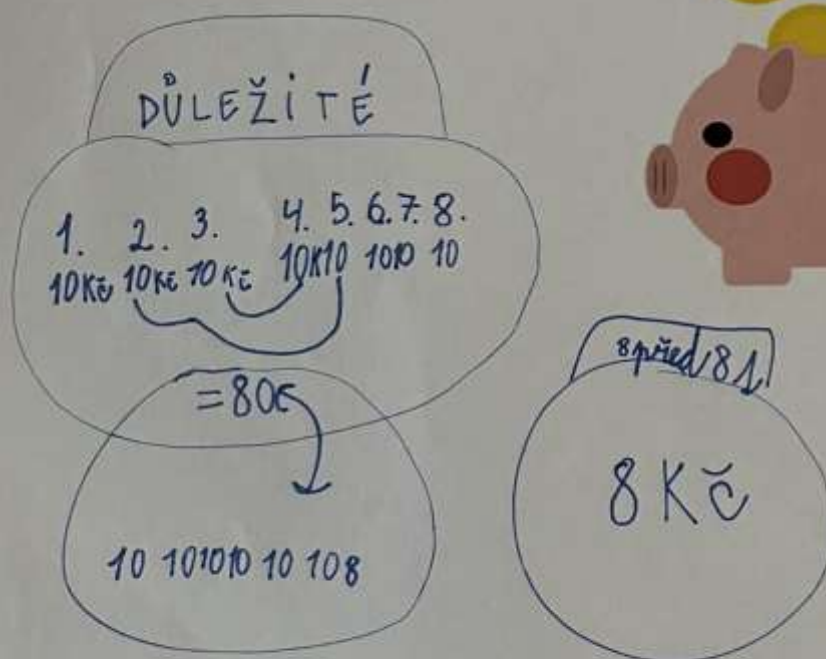 DŮLEŽITÉ
1. 2. 3. 4. 5. 6. 7. 8.
10Kč 10Kč 10Kč 10K10 1010 10
=80
10 101010 10 108
8před 81
8 Kč